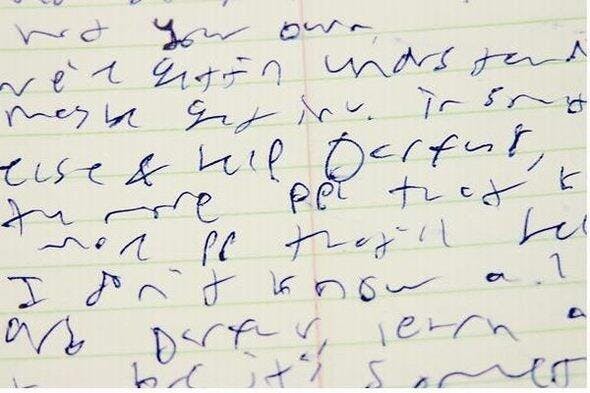 not your own
gettin undrstand
maybe get inv. in smt
else & help Darfur,
the more ppl that k
mor pp that'll hel
I don't know a
Darfur, learn a
it's